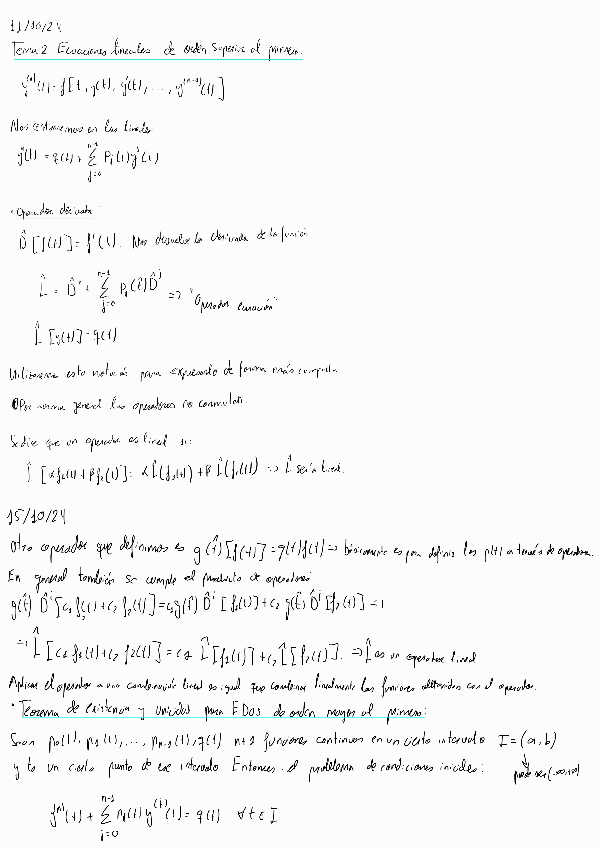 11/10/24
Tema 2 Ecuaciones lineales de orden superior al primero.
y^(n)(t) = f[t, y(t), y'(t), ..., y^(n-1)(t)]
Nos centraremos en las lineales
y^n(t) = q(t) + Σ_{j=0}^{n-1} P_j(t) y^j(t)
· Operador derivada:
D̂[f(t)] = f'(t). Nos devuelve la derivada de la función
L̂ = D̂^n + Σ_{j=0}^{n-1} P_j(t̂) D̂^j => "Operador ecuación"
L̂[y(t)] = q(t)
Utilizaremos esta notación para expresarlo de forma más compacta
Por norma general los operadores no conmutan.
Se dice que un operador es lineal si:
L̂[αf_1(t) + βf_2(t)] = αL̂(f_1(t)) + βL̂(f_2(t)) => L̂ sería lineal.
15/10/24
Otro operador que definimos es g(t̂)[f(t)] = g(t)f(t) => básicamente es para definir los p(t) a través de operadores.
En general también se cumple el producto de operadores:
g(t̂) D̂^j [c_1 f_1(t) + c_2 f_2(t)] = c_1 g(t̂) D̂^j [f_1(t)] + c_2 g(t̂) D̂^j [f_2(t)] =>
=> L̂[c_1 f_1(t) + c_2 f_2(t)] = c_1 L̂[f_1(t)] + c_2 L̂[f_2(t)]. => L̂ es un operador lineal
Aplicar el operador a una combinación lineal es igual que combinar linealmente las funciones obtenidas con el operador.
· Teorema de existencia y unicidad para EDOs de orden mayor al primero:
Sean p_0(t), p_1(t), ..., p_{n-1}(t), q(t) n+1 funciones continuas en un cierto intervalo I = (a, b)
y t_0 un cierto punto de ese intervalo. Entonces el problema de condiciones iniciales: puede ser (-∞,∞)
y^(n)(t) + Σ_{j=0}^{n-1} p_j(t) y^(j)(t) = q(t) ∀ t ∈ I